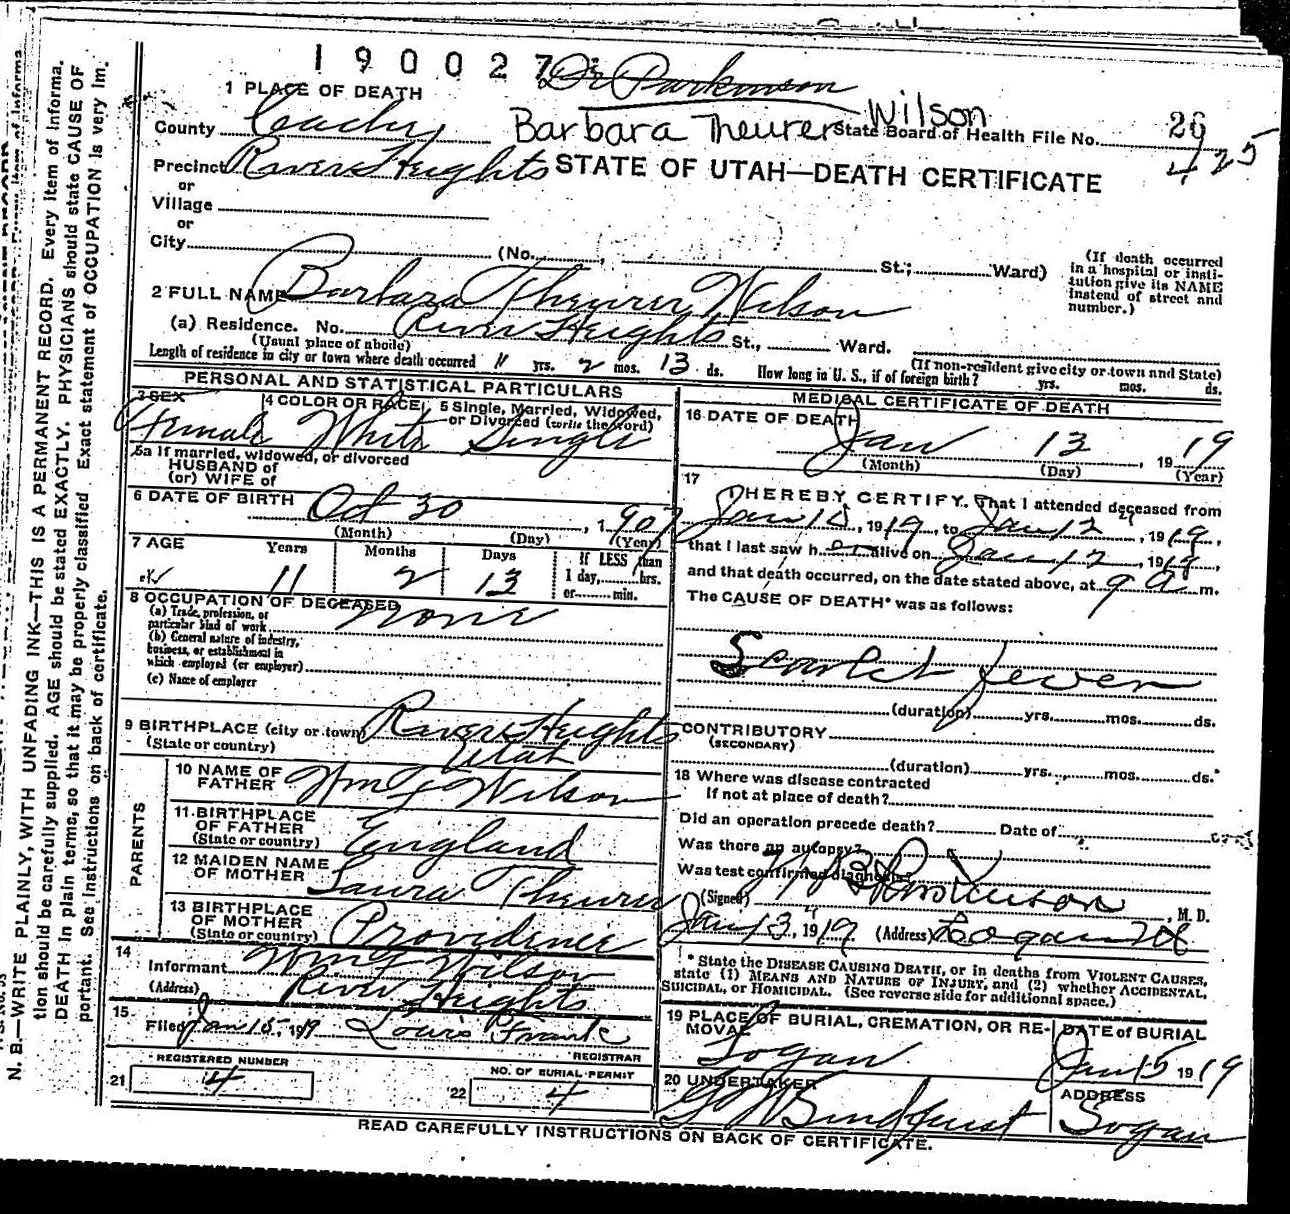 190027
Dr Parkinson
1 PLACE OF DEATH
Wilson
County Cache
Barbara Theurer
State Board of Health File No. 26
425
Precinct River Heights
STATE OF UTAH—DEATH CERTIFICATE
or
Village
or
City (No. St.; Ward)
(If death occurred in a hospital or institution give its NAME instead of street and number.)
2 FULL NAME Barbara Theurer Wilson
(a) Residence. No. River Heights St., Ward.
(Usual place of abode) (If non-resident give city or town and State)
Length of residence in city or town where death occurred 11 yrs. 2 mos. 13 ds. How long in U. S., if of foreign birth? yrs. mos. ds.
PERSONAL AND STATISTICAL PARTICULARS
3 SEX 4 COLOR OR RACE 5 Single, Married, Widowed, or Divorced (write the word)
Female White Single
5a If married, widowed, or divorced
HUSBAND of
(or) WIFE of
6 DATE OF BIRTH Oct 30, 1907
(Month) (Day) (Year)
7 AGE Years Months Days If LESS than
11 2 13 1 day, hrs.
or min.
8 OCCUPATION OF DECEASED
(a) Trade, profession, or
particular kind of work None
(b) General nature of industry,
business, or establishment in
which employed (or employer)
(c) Name of employer
9 BIRTHPLACE (city or town) River Heights
(State or country) Utah
PARENTS
10 NAME OF FATHER Wm G Wilson
11 BIRTHPLACE OF FATHER
(State or country) England
12 MAIDEN NAME OF MOTHER Laura Theurer
13 BIRTHPLACE OF MOTHER
(State or country) Providence
14
Informant Wm G Wilson
(Address) River Heights
15
Filed Jan 15, 1919 Louis Frank
REGISTRAR
REGISTERED NUMBER NO. OF BURIAL PERMIT
21 4 22 4
MEDICAL CERTIFICATE OF DEATH
16 DATE OF DEATH
Jan 13, 1919
(Month) (Day) (Year)
17
I HEREBY CERTIFY, That I attended deceased from
Jan, 1919, to Jan 12, 1919,
that I last saw her alive on Jan 12, 1919,
and that death occurred, on the date stated above, at 9 a m.
The CAUSE OF DEATH* was as follows:
Scarlet fever
(duration) yrs. mos. ds.
CONTRIBUTORY
(SECONDARY)
(duration) yrs. mos. ds.
18 Where was disease contracted
If not at place of death?
Did an operation precede death? Date of
Was there an autopsy?
Was test confirmed diagnosis?
(Signed) Parkinson, M. D.
Jan 13, 1919 (Address) Logan Ut
* State the DISEASE CAUSING DEATH, or in deaths from VIOLENT CAUSES,
state (1) MEANS AND NATURE OF INJURY, and (2) whether ACCIDENTAL,
SUICIDAL, or HOMICIDAL. (See reverse side for additional space.)
19 PLACE OF BURIAL, CREMATION, OR REMOVAL DATE of BURIAL
Logan Jan 15 1919
20 UNDERTAKER ADDRESS
Lindquist Logan
READ CAREFULLY INSTRUCTIONS ON BACK OF CERTIFICATE.
N. B.—WRITE PLAINLY, WITH UNFADING INK—THIS IS A PERMANENT RECORD. Every item of informa-
tion should be carefully supplied. AGE should be stated EXACTLY. PHYSICIANS should state CAUSE OF
DEATH in plain terms, so that it may be properly classified. Exact statement of OCCUPATION is very im-
portant. See instructions on back of certificate.